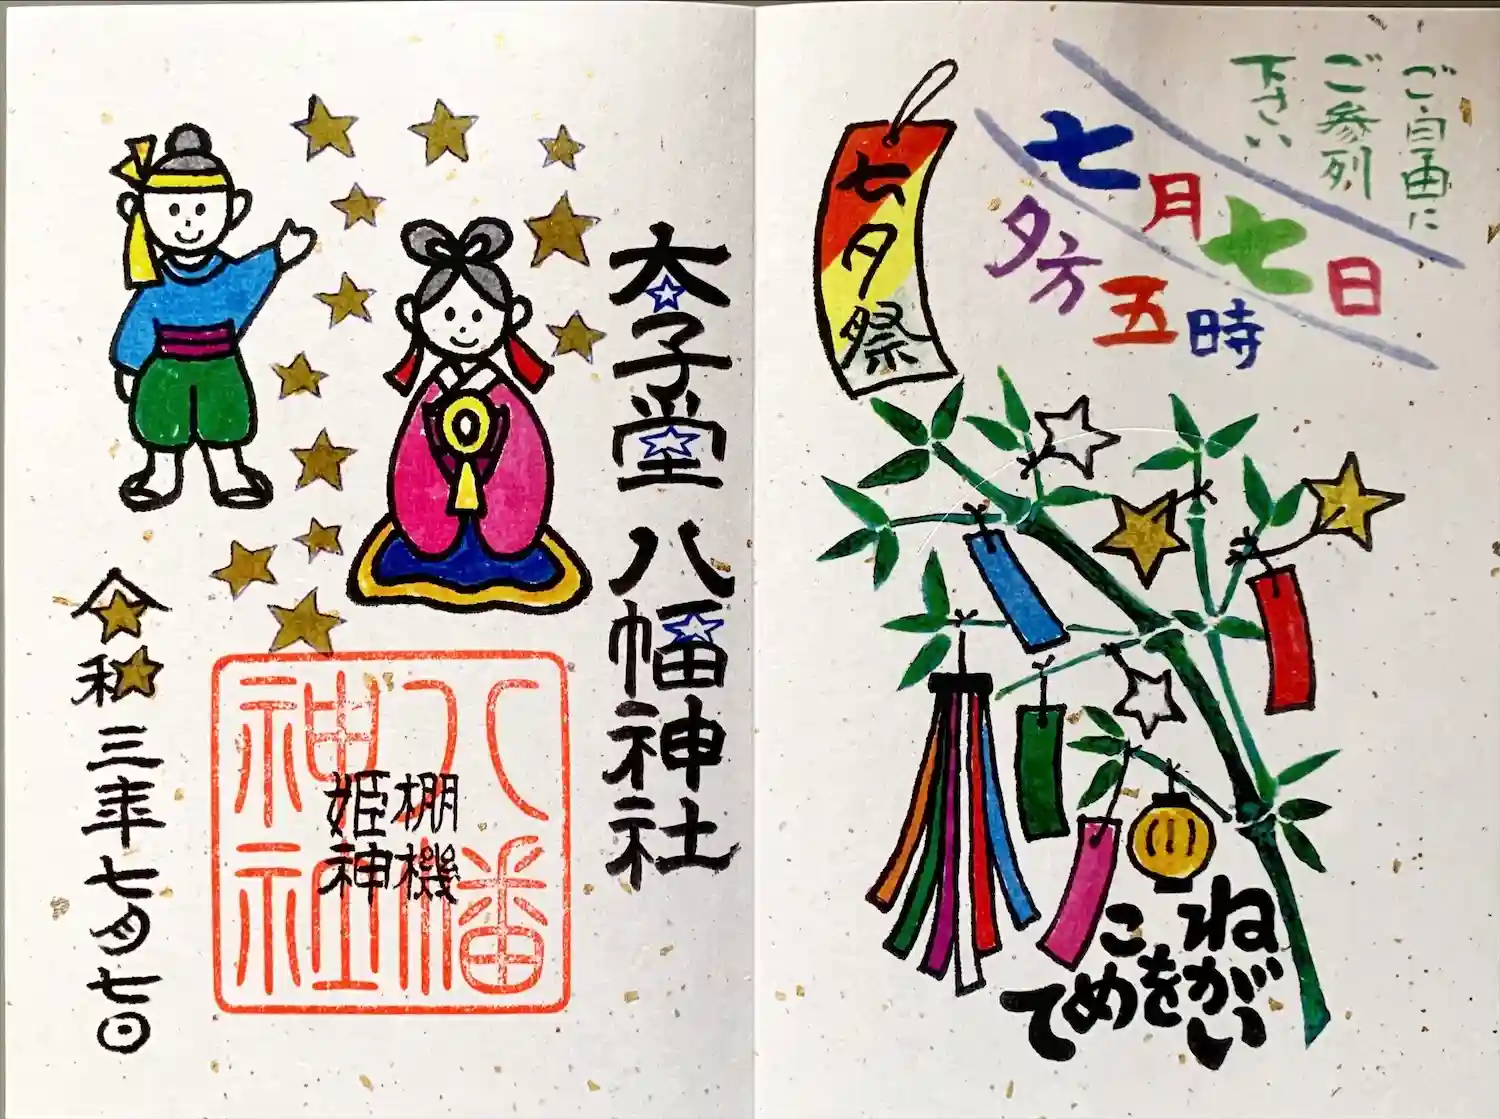 ご自由に
ご参列
下さい
七月七日
夕方五時
七夕祭
ねがい
をこめて
太子堂八幡神社
八幡神社
棚機
姫神
令和三年七月七日